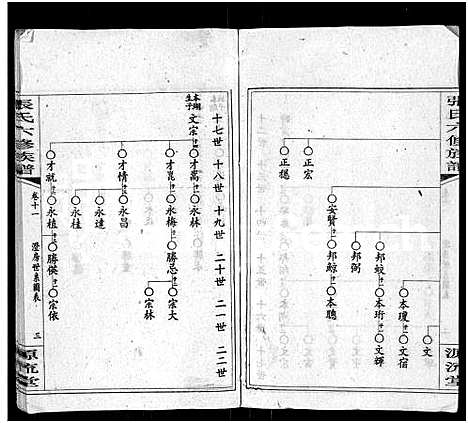 張氏六修族譜
正宏
正穩
安賢
邦蛟
邦鯨
邦弼
本瓊
本珩
本聰
文
文宿
文輝
源流堂
十七世
十八世
十九世
二十世
二一世
二二世
文宗
才萬
永林
才崑
永梅
勝忠
宗大
宗林
才情
永昌
永達
永桂
才就
永植
勝僕
宗依
張氏六修族譜
卷十一
澄房世系圖表
三
源流堂